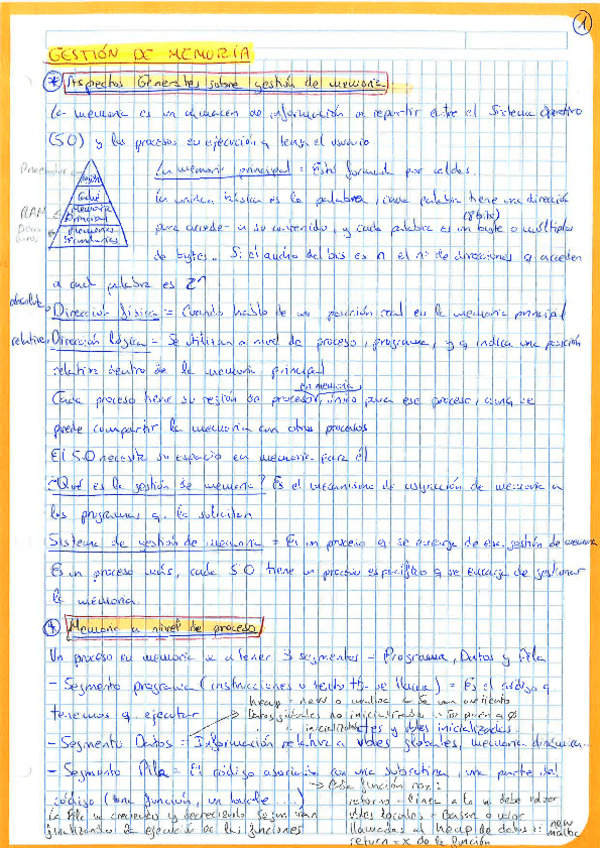 1
GESTIÓN DE MEMORIA
* Aspectos Generales sobre gestión de memoria
La memoria es un almacén de información a repartir entre el Sistema Operativo
(SO) y los procesos en ejecución q tenga el usuario
La memoria principal = Está formada por celdas.
Registro
Caché
Memoria Principal
Memorias Secundarias
RAM
la unidad básica es la palabra, cada palabra tiene una dirección
(8 bits)
para acceder a su contenido, y cada palabra es un byte o múltiplos
de bytes. Si el ancho del bus es n el nº de direcciones q acceden
a cada palabra es 2^n
absoluta Dirección física = Cuando hablo de una posición real en la memoria principal
relativa Dirección lógica - Se utilizan a nivel de proceso, programa, y q indica una posición
relativa dentro de la memoria principal
en memoria
Cada proceso tiene su región de proceso, único para ese proceso, aunq se
puede compartir la memoria con otros procesos
El S.O necesita su espacio en memoria para él
¿Qué es la gestión de memoria? Es el mecanismo de asignación de memoria a
los programas q la solicitan
Sistema de gestión de memoria = Es un proceso q se encarga de esa gestión de memoria
Es un proceso más, cada SO tiene un proceso específico q se encarga de gestionar
la memoria.
* Memoria a nivel de proceso
Un proceso en memoria va a tener 3 segmentos - Programa, Datos y Pila
- Segmento programa (instrucciones o texto tb se llama) = Es el código q
tenemos q ejecutar
heap = new o
Datos globales no inicializados
y vbles inicializadas.
- Segmento Datos = Información relativa a vbles globales, memoria dinámica...
- Segmento Pila = El código asociado con una subrutina, una parte del
código (una función, un bucle ...)
la Pila va creciendo y decreciendo según van
finalizando la ejecución de las funciones
retorno = línea a la q debe volver
vbles locales =
llamadas al heap de datos: new
malloc
return = x de la función